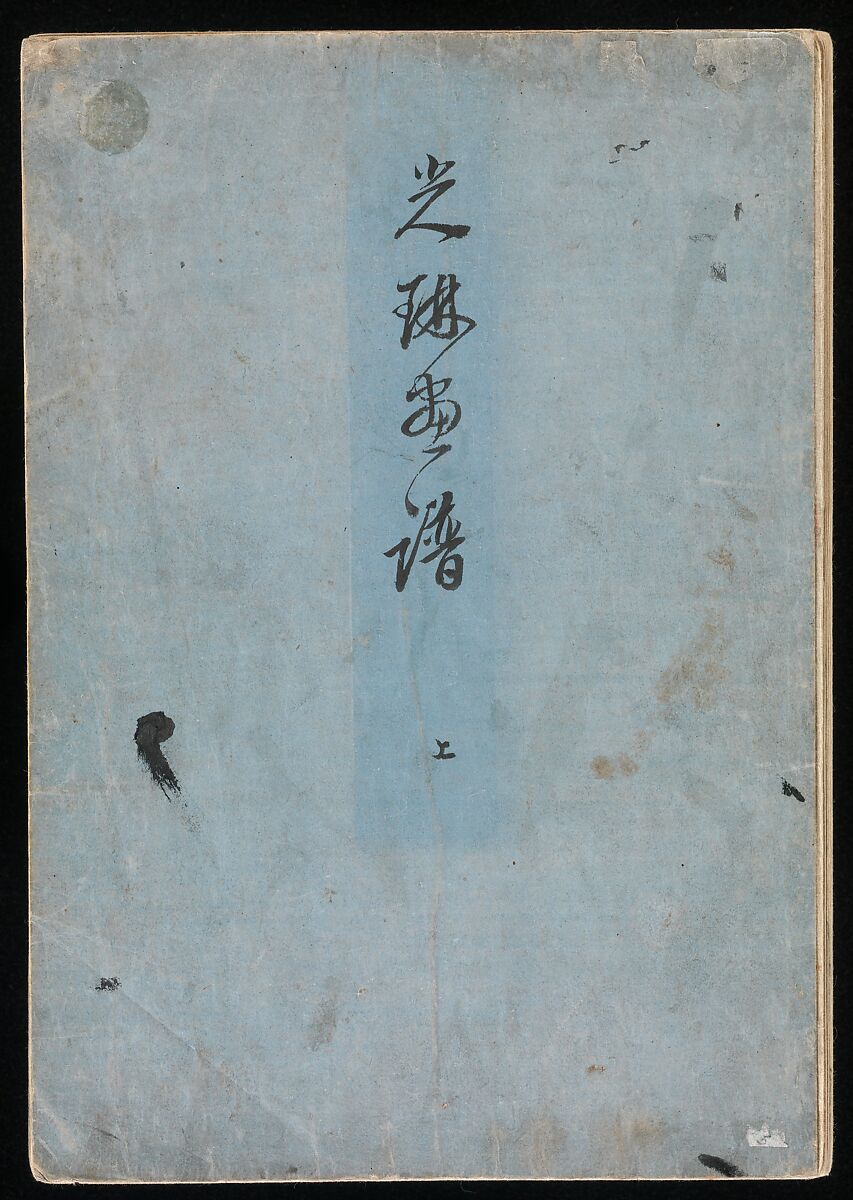 光琳画譜
上